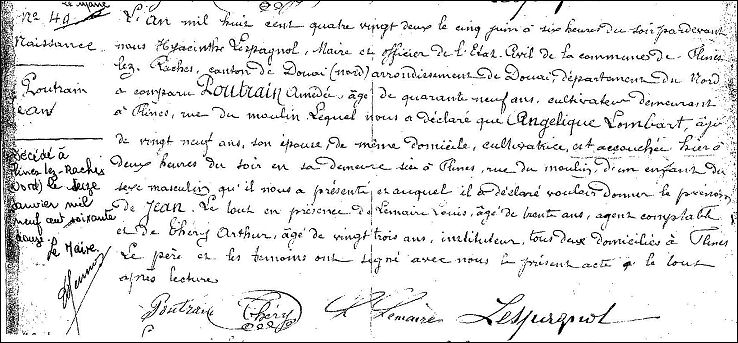 le Maire
N° 40
Naissance
Poutrain
Jean
Décédé à
Flines-lez-Raches
(Nord) le seize
janvier mil
neuf cent soixante
douze
Le Maire
L'an mil huit cent quatre vingt deux le cinq juin à six heures du soir par devant
nous Hyacinthe Lespagnol, Maire et officier de l'Etat-Civil de la commune de Flines
lez-Raches, canton de Douai (nord) arrondissement de Douai, département du Nord
a comparu Poutrain Amédé, âgé de quarante neuf ans, cultivateur demeurant
à Flines, rue du moulin Lequel nous a déclaré que Angélique Lombart, âgée
de vingt neuf ans, son épouse, de même domicile, cultivatrice, est accouchée hier à
deux heures du soir en sa demeure sise à Flines, rue du moulin, d'un enfant du
sexe masculin qu'il nous a présenté et auquel il a déclaré vouloir donner le prénom
de Jean. Le tout en présence de Lemaire Louis, âgé de trente ans, agent comptable
et de Théry Arthur, âgé de vingt trois ans, instituteur, tous deux domiciliés à Flines
Le père et les temoins ont signé avec nous le présent acte le tout
après lecture
Poutrain Théry L Lemaire Lespagnol